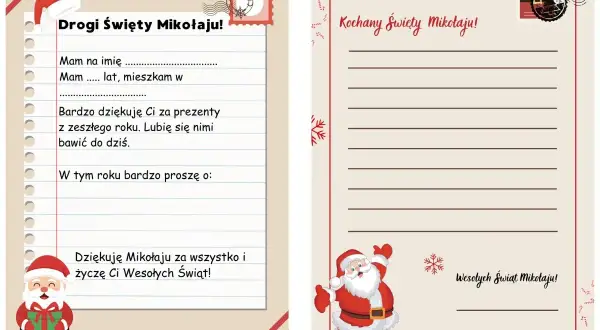 Drogi Święty Mikołaju!
Mam na imię ..................................
Mam ..... lat, mieszkam w
................................
Bardzo dziękuję Ci za prezenty
z zeszłego roku. Lubię się nimi
bawić do dziś.
W tym roku bardzo proszę o:
Dziękuję Mikołaju za wszystko i
życzę Ci Wesołych Świąt!
Kochany Święty Mikołaju!
Wesołych Świąt Mikołaju!